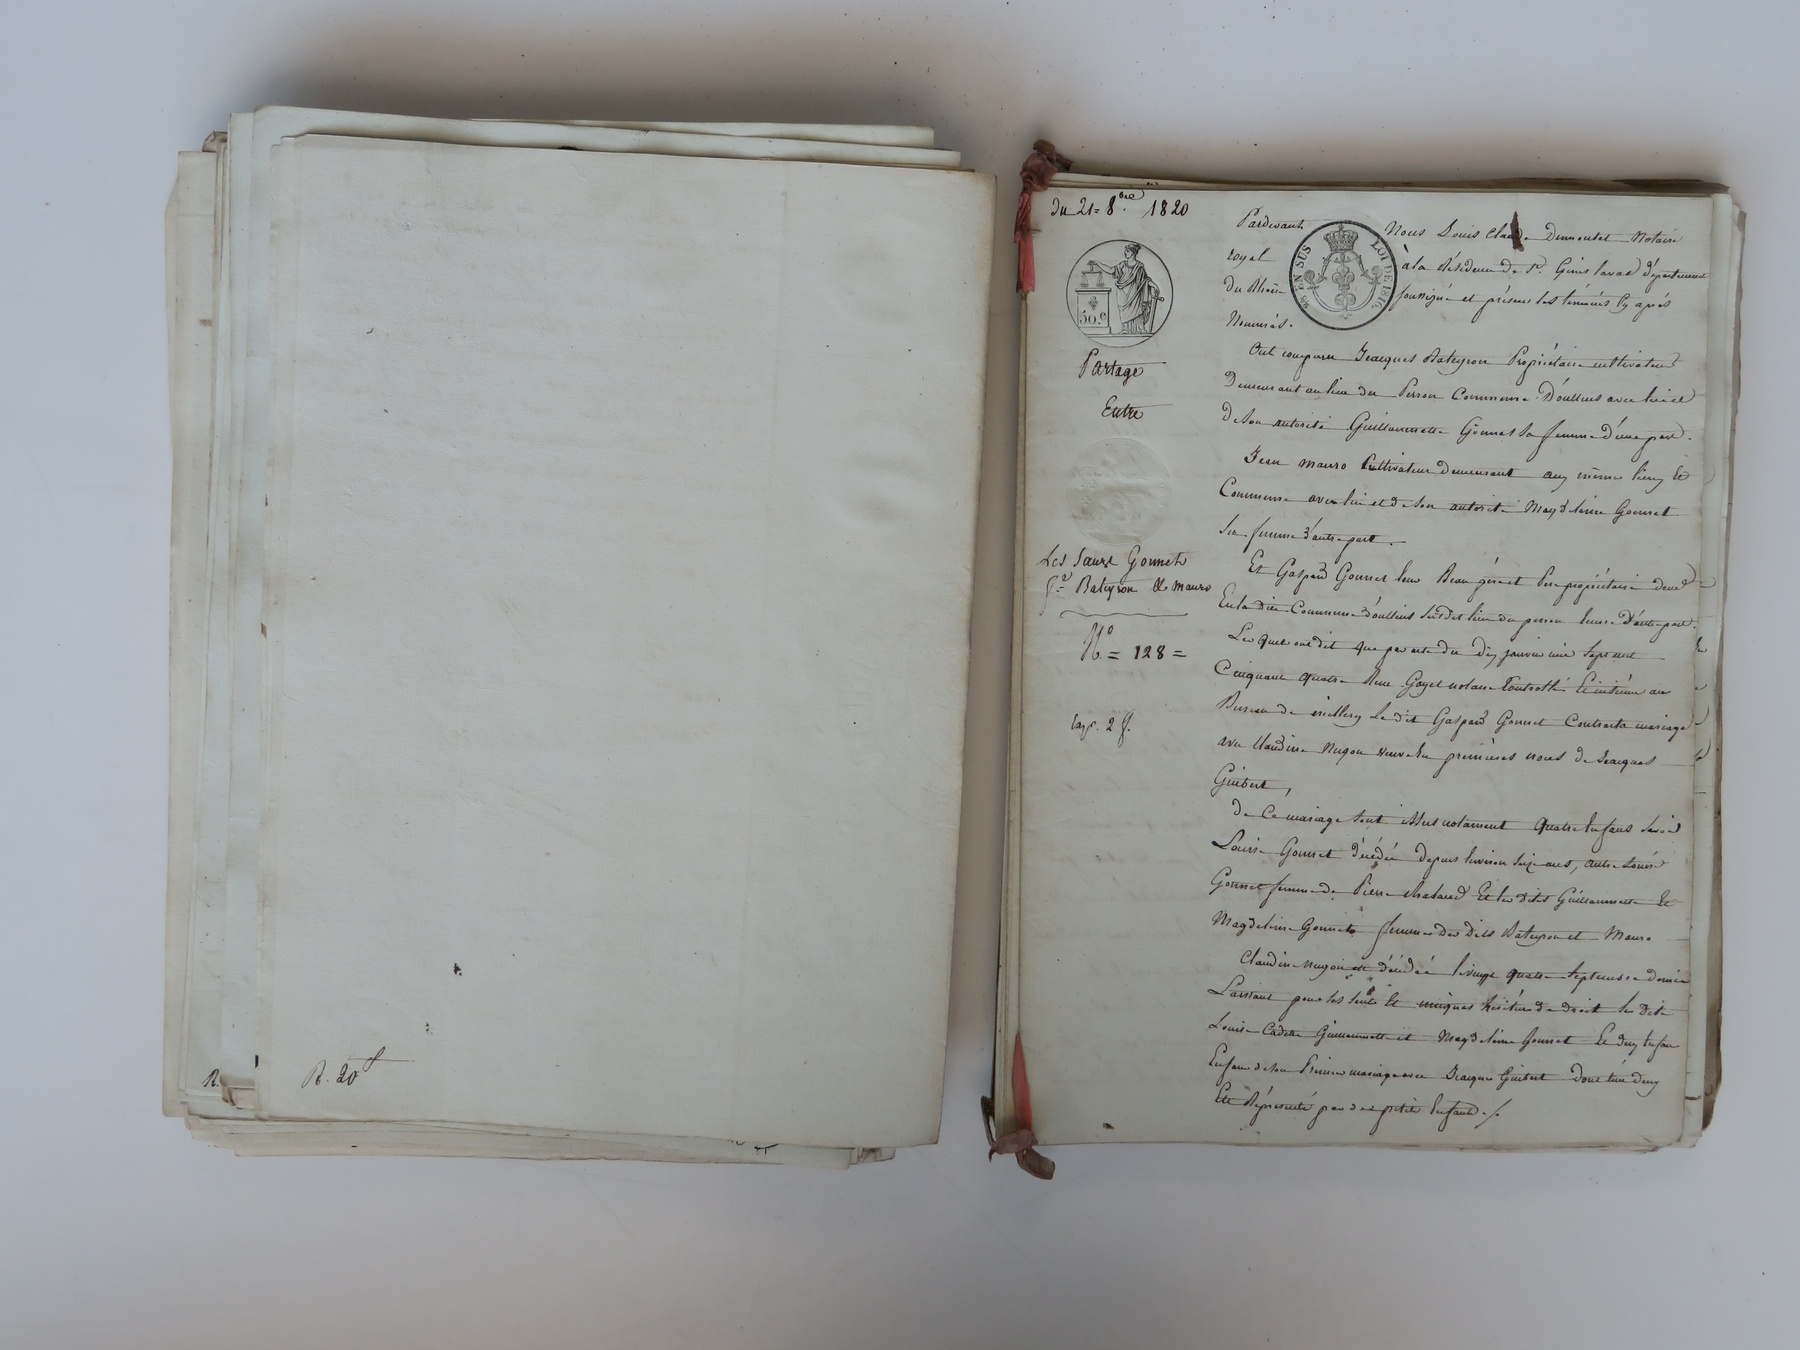 R. 20
du 21 = 8.bre 1820
50.c
Partage
Entre
Les Sœurs Gonnet
f.e Bateyron & Mauro
N.o = 128 =
Exp. 2 f.
EN SUS LOI DE 1816.
Pardevant Nous Louis Claude Notaire
royal à la Résidence de St. Genis laval département
du Rhône soussigné et présens les témoins Cy après
Nommés.
Ont comparu Jeacques Bateyron Propriétaire cultivateur
Demeurant au lieu du Perron Commune D'oullins avec lui et
De son autorité Guillaumette Gonnet sa femme d'une part.
Jean Mauro Cultivateur demeurant au même lieu Et
Commune avec lui et de son autorité Magdeleine Gonnet
sa femme d'autre part.
Et Gaspard Gonnet leur Beau père et Père propriétaire demt
En la dite Commune d'oullins susdit lieu du perron d'autre part.
Les quels ont dit que par acte du Dix janvier mil sept cent
Cinquante quatre Reçu Goyet notaire Controllé Et insinué au
Bureau de millery Le dit Gaspard Gonnet Contracta mariage
avec Claudine Nugon veuve En premières noces de Jeacques
Guibert,
de Ce mariage sont issus notament quatre Enfans savoir
Louise Gonnet décédée depuis Environ seize ans, autre Louise
Gonnet femme de Pierre Et les dites Guillaumette Et
Magdeleine Gonnet femmes Des Dits Bateyron et Mauro
Claudine Nugon est décédée le vingt quatre Septembre dernier
Laissant pour ses seuls Et uniques héritiers de droit les Dites
Louise Cadette Guillaumette et Magdeleine Gonnet Et deux Enfans
Enfans de son Premier mariage avec Jeacques Guibert Dont l'un deux
Est Représenté par des petits Enfants.